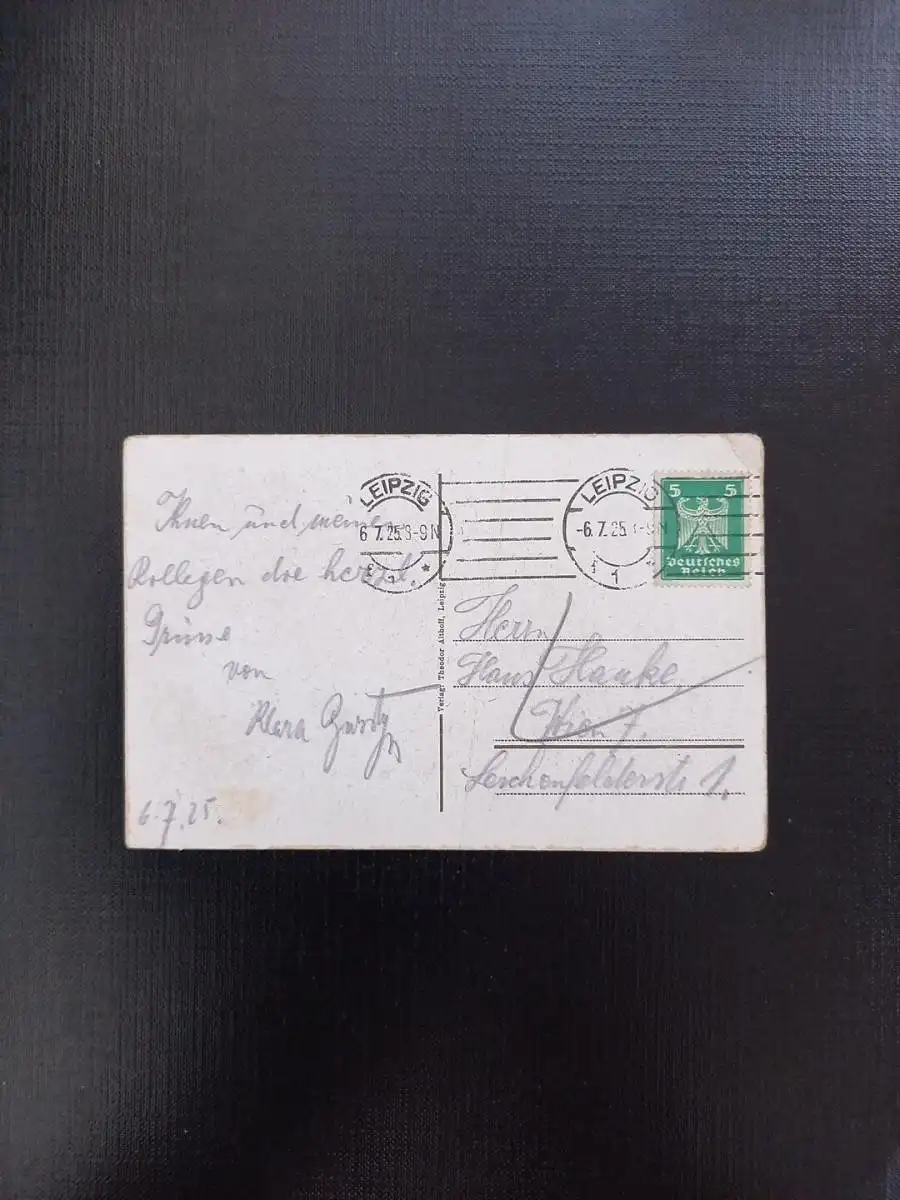 Ihnen und meinen
Kollegen die herzl.
Grüsse
von
Klara
6.7.25.
LEIPZIG
6 7.25.8-9N
1
*
LEIPZIG
-6.7.25.8-9N
1
5 5
Deutsches
Reich
Verlag: Theodor Althoff, Leipzig
Herrn
Hans Hanke
Wien 7.
Lerchenfelderstr. 1.